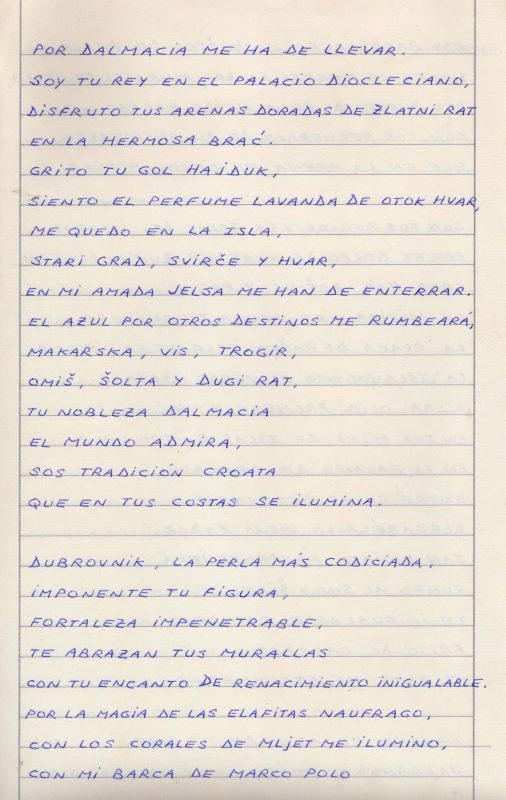 POR DALMACIA ME HA DE LLEVAR.
SOY TU REY EN EL PALACIO DIOCLECIANO,
DISFRUTO TUS ARENAS DORADAS DE ZLATNI RAT
EN LA HERMOSA BRAČ.
GRITO TU GOL HAJDUK,
SIENTO EL PERFUME LAVANDA DE OTOK HVAR,
ME QUEDO EN LA ISLA,
STARI GRAD, SVIRČE Y HVAR,
EN MI AMADA JELSA ME HAN DE ENTERRAR.
EL AZUL POR OTROS DESTINOS ME RUMBEARÁ,
MAKARSKA, VIS, TROGIR,
OMIŠ, ŠOLTA Y DUGI RAT,
TU NOBLEZA DALMACIA
EL MUNDO ADMIRA,
SOS TRADICIÓN CROATA
QUE EN TUS COSTAS SE ILUMINA.
DUBROVNIK, LA PERLA MÁS CODICIADA,
IMPONENTE TU FIGURA,
FORTALEZA IMPENETRABLE,
TE ABRAZAN TUS MURALLAS
CON TU ENCANTO DE RENACIMIENTO INIGUALABLE.
POR LA MAGIA DE LAS ELAFITAS NAUFRAGO,
CON LOS CORALES DE MLJET ME ILUMINO,
CON MI BARCA DE MARCO POLO